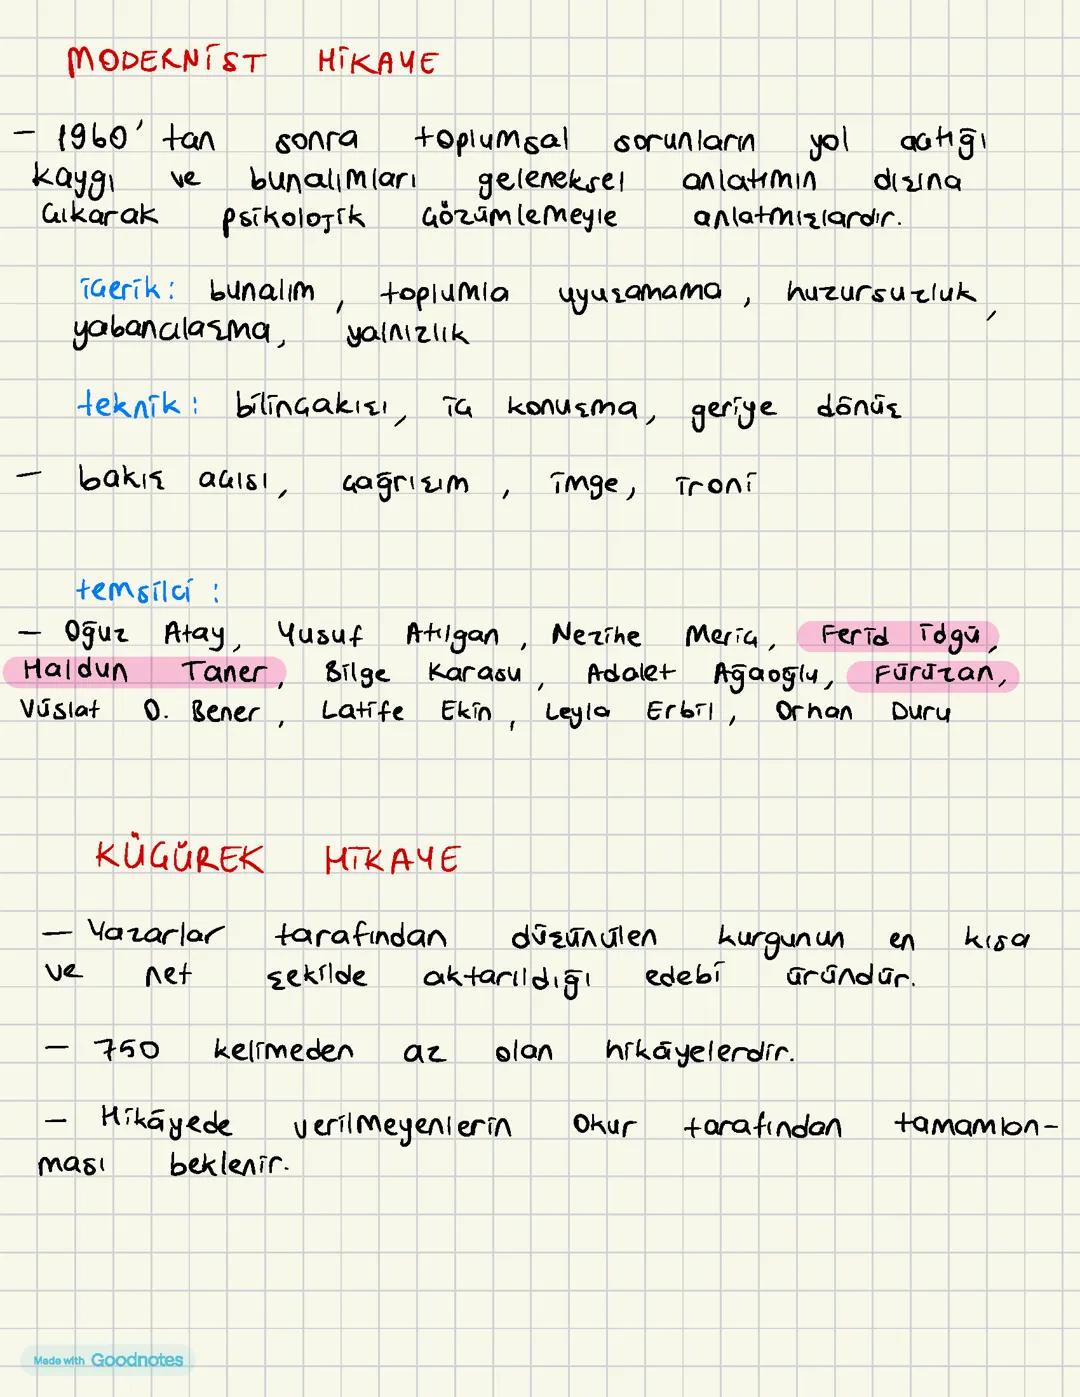 MODERNİST HİKAYE
- 1960'tan sonra toplumsal sorunların yol açtığı
kaygı ve bunalımları geleneksel anlatımın dışına
çıkarak psikolojik çözümlemeyle anlatmışlardır.
içerik: bunalım, toplumla uyuşamama, huzursuzluk,
yabancılaşma, yalnızlık
teknik: bilinçakışı, iç konuşma, geriye dönüş
- bakış açısı, çağrışım, imge, ironi
temsilci:
- Oğuz Atay, Yusuf Atılgan, Nezihe Meriç, Ferid İdgü,
Haldun Taner, Bilge Karasu, Adalet Ağaoğlu, Fürüzan,
Vüslat O. Bener, Latife Ekin, Leyla Erbil, Orhan Duru
KÜÇÜREK HİKAYE
- Yazarlar tarafından düşünülen kurgunun en kısa
ve net şekilde aktarıldığı edebi üründür.
- 750 kelimeden az olan hikâyelerdir.
- Hikâyede verilmeyenlerin okur tarafından tamamlan-
ması beklenir.
Made with Goodnotes